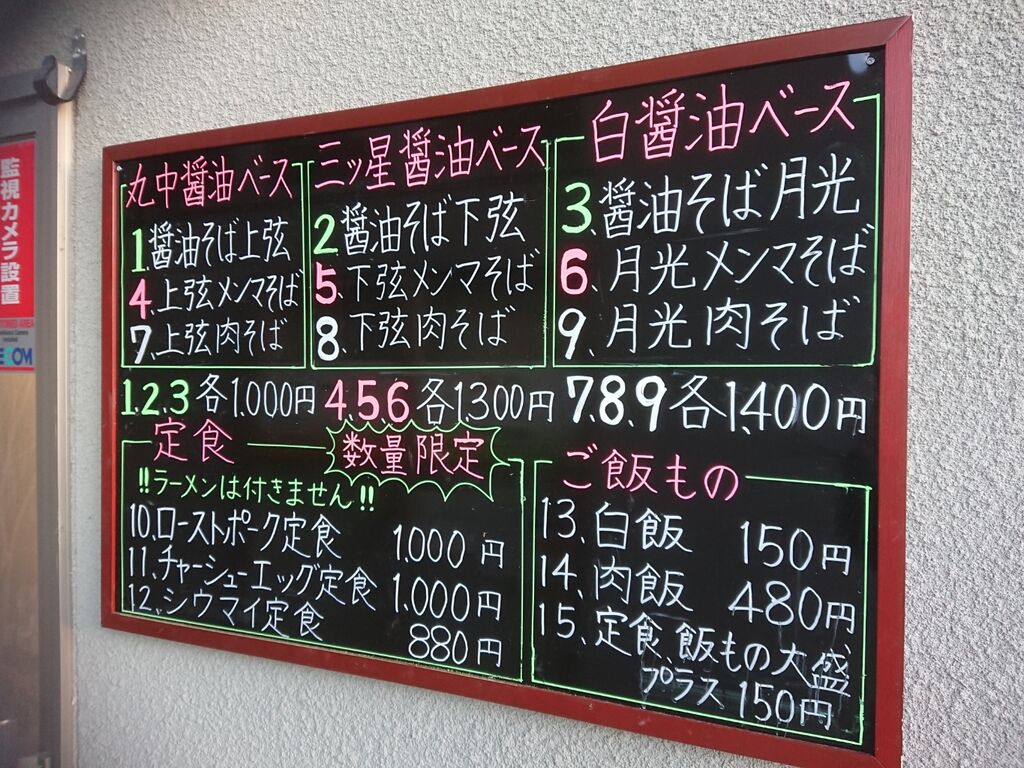 監視カメラ設置
丸中醤油ベース
1.醤油そば上弦
4.上弦メンマそば
7.上弦肉そば
三ッ星醤油ベース
2.醤油そば下弦
5、下弦メンマそば
8、下弦肉そば
白醤油ベース
3、醤油そば月光
6、月光メンマそば
9、月光肉そば
1.2.3各1.000円 4.5.6各1.300円 7.8.9各1.400円
定食
数量限定
!!ラーメンは付きません!!
10.ローストポーク定食 1.000円
11.チャーシューエッグ定食 1.000円
12、シウマイ定食 880円
ご飯もの
13、白飯 150円
14、肉飯 480円
15、定食、飯もの大盛
プラス150円